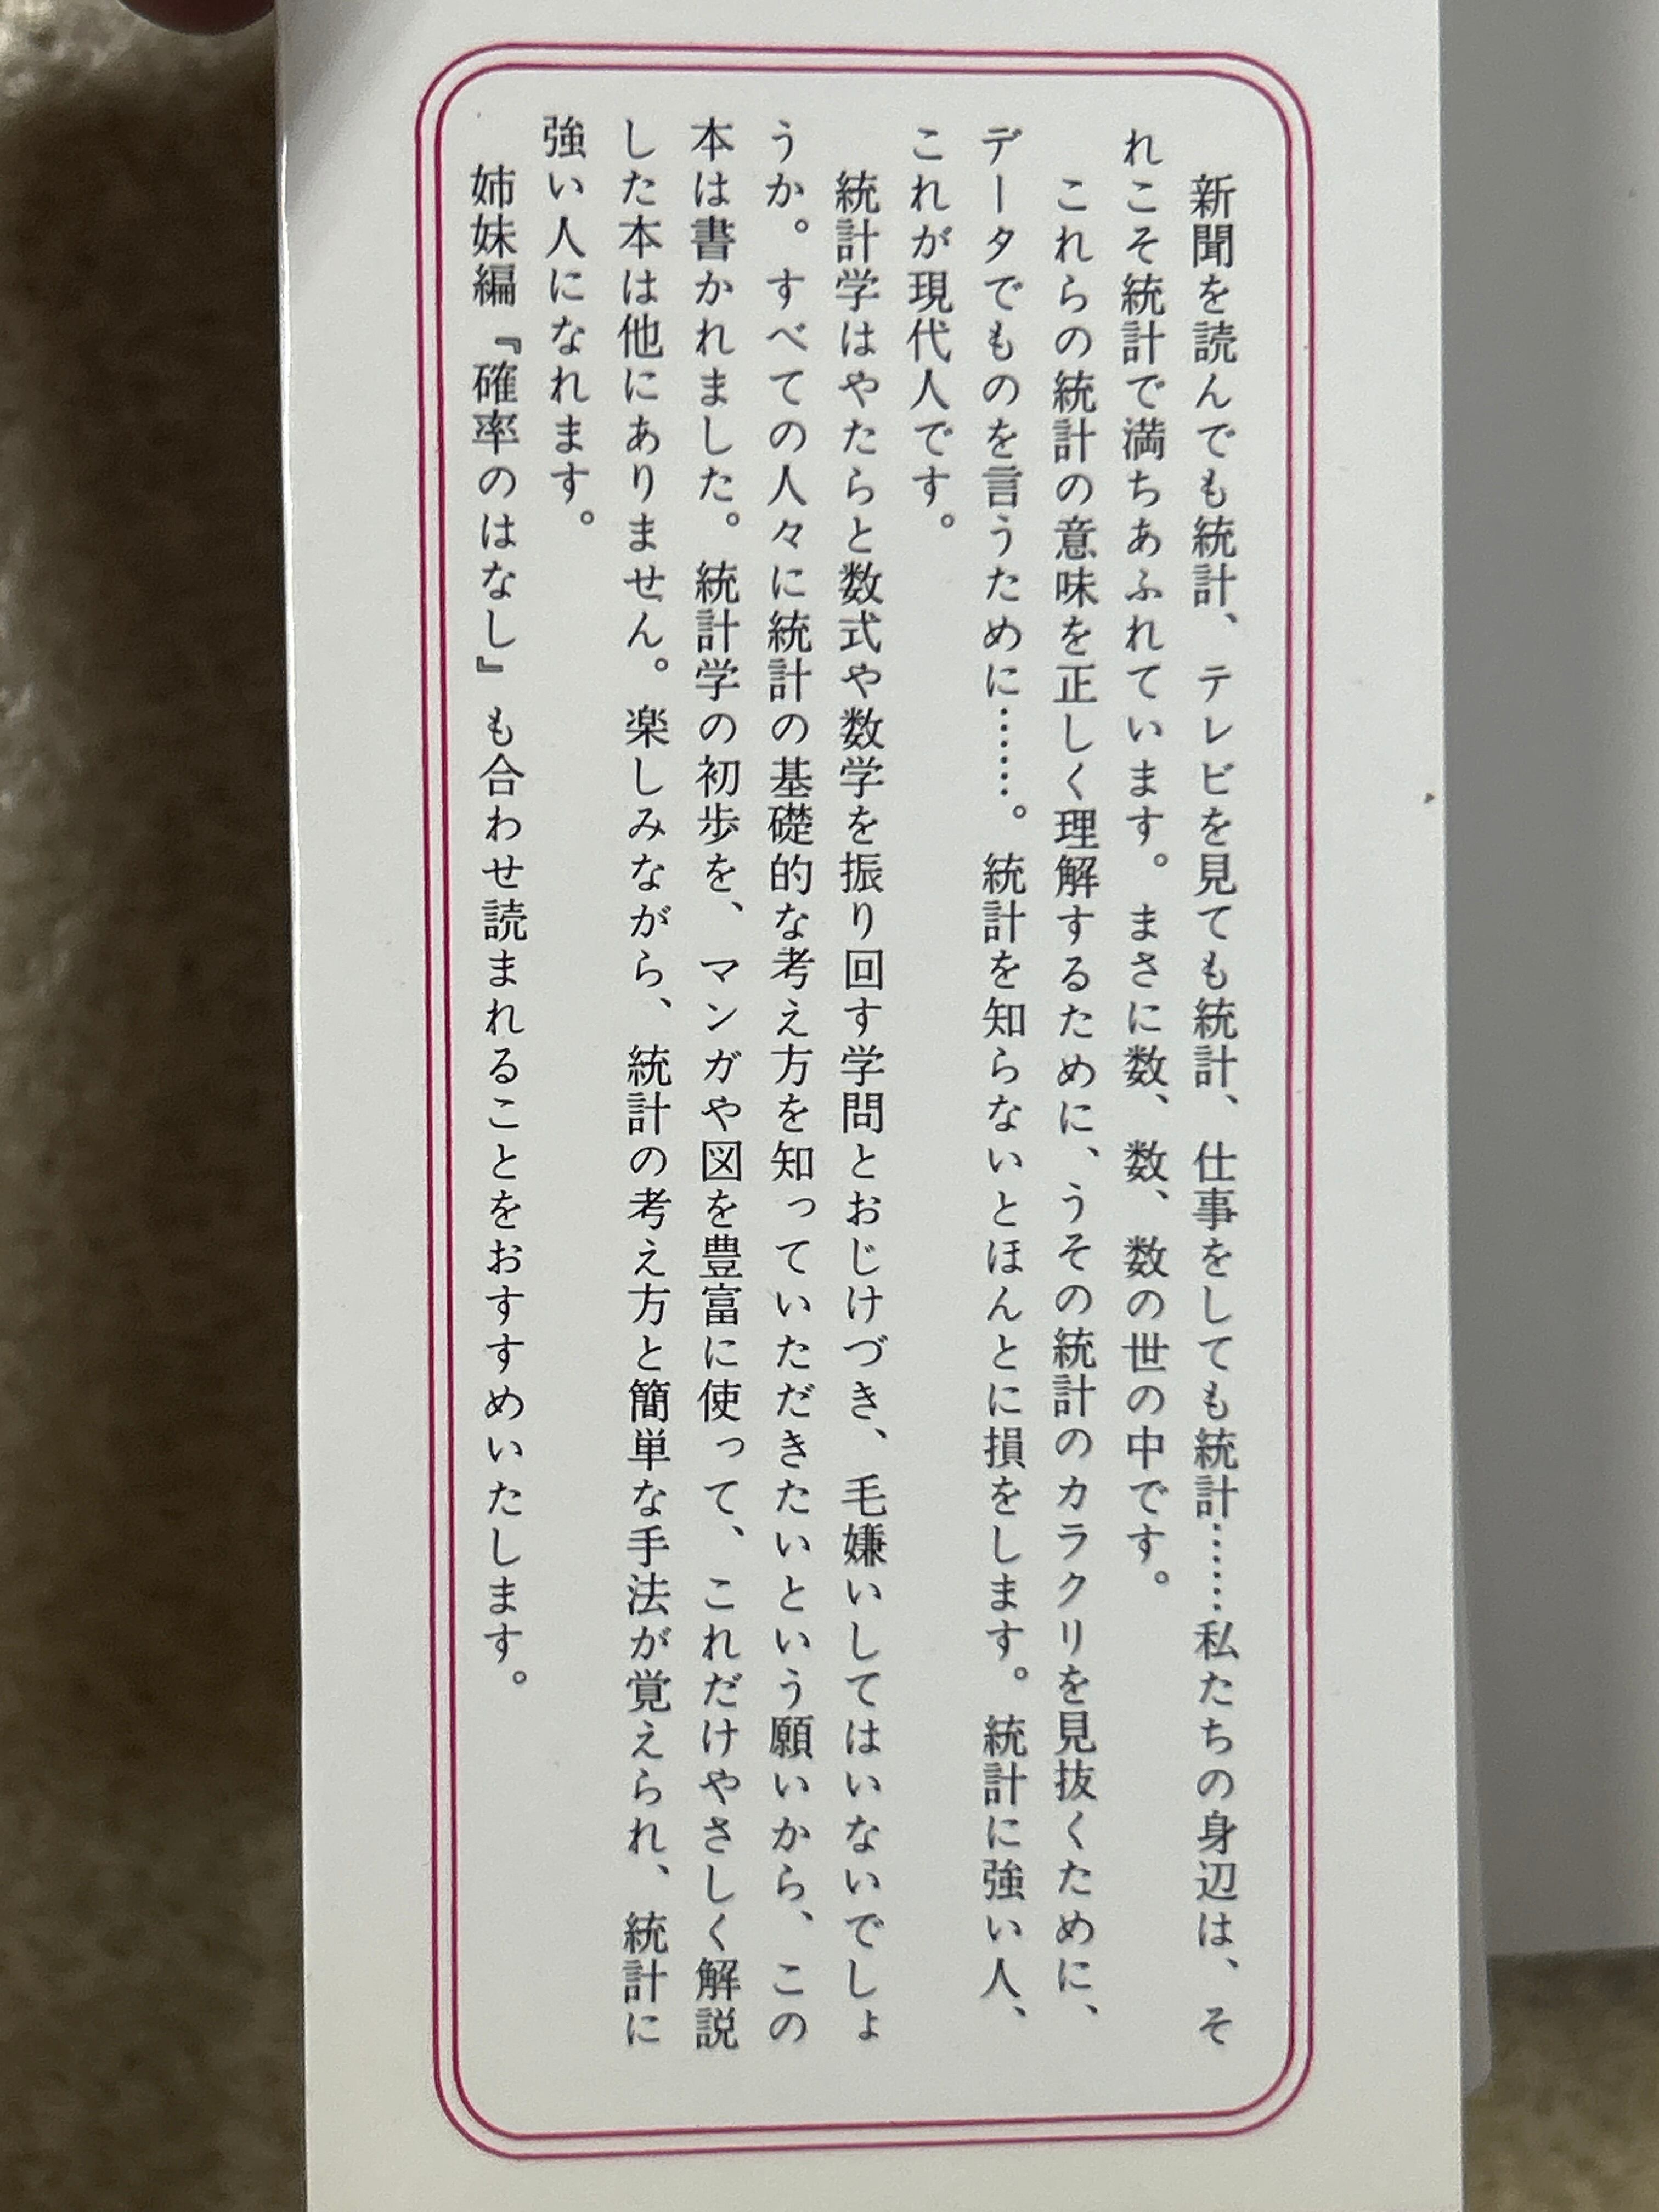 新聞を読んでも統計、テレビを見ても統計、仕事をしても統計……私たちの身辺は、そ
れこそ統計で満ちあふれています。まさに数、数、数の世の中です。
これらの統計の意味を正しく理解するために、うその統計のカラクリを見抜くために、
データでものを言うために……。統計を知らないとほんとに損をします。統計に強い人、
これが現代人です。
統計学はやたらと数式や数学を振り回す学問とおじけづき、毛嫌いしてはいないでしょ
うか。すべての人々に統計の基礎的な考え方を知っていただきたいという願いから、この
本は書かれました。統計学の初歩を、マンガや図を豊富に使って、これだけやさしく解説
した本は他にありません。楽しみながら、統計の考え方と簡単な手法が覚えられ、統計に
強い人になれます。
姉妹編『確率のはなし』も合わせ読まれることをおすすめいたします。